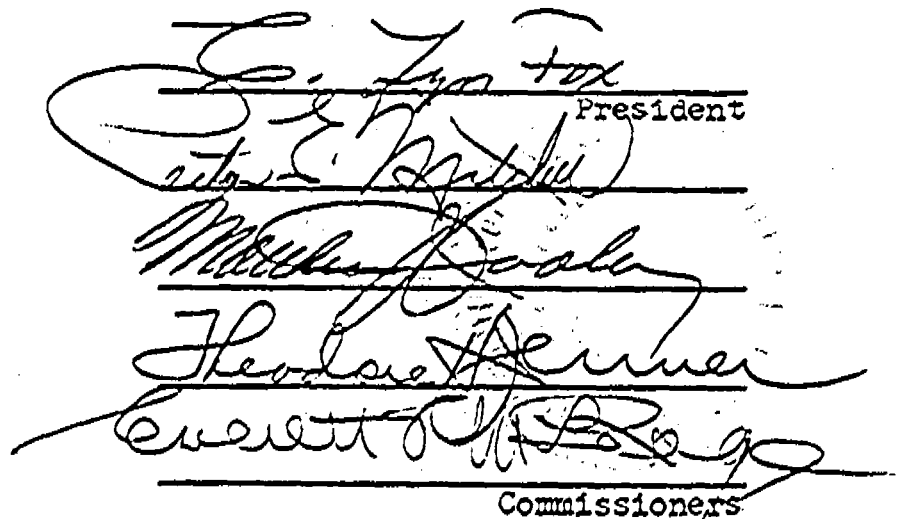 E. Lyn Fox
President
Peter E. Mitchell
Matthew J. Dooley
Theodore Brenner
Everett C. McKeage
Commissioners